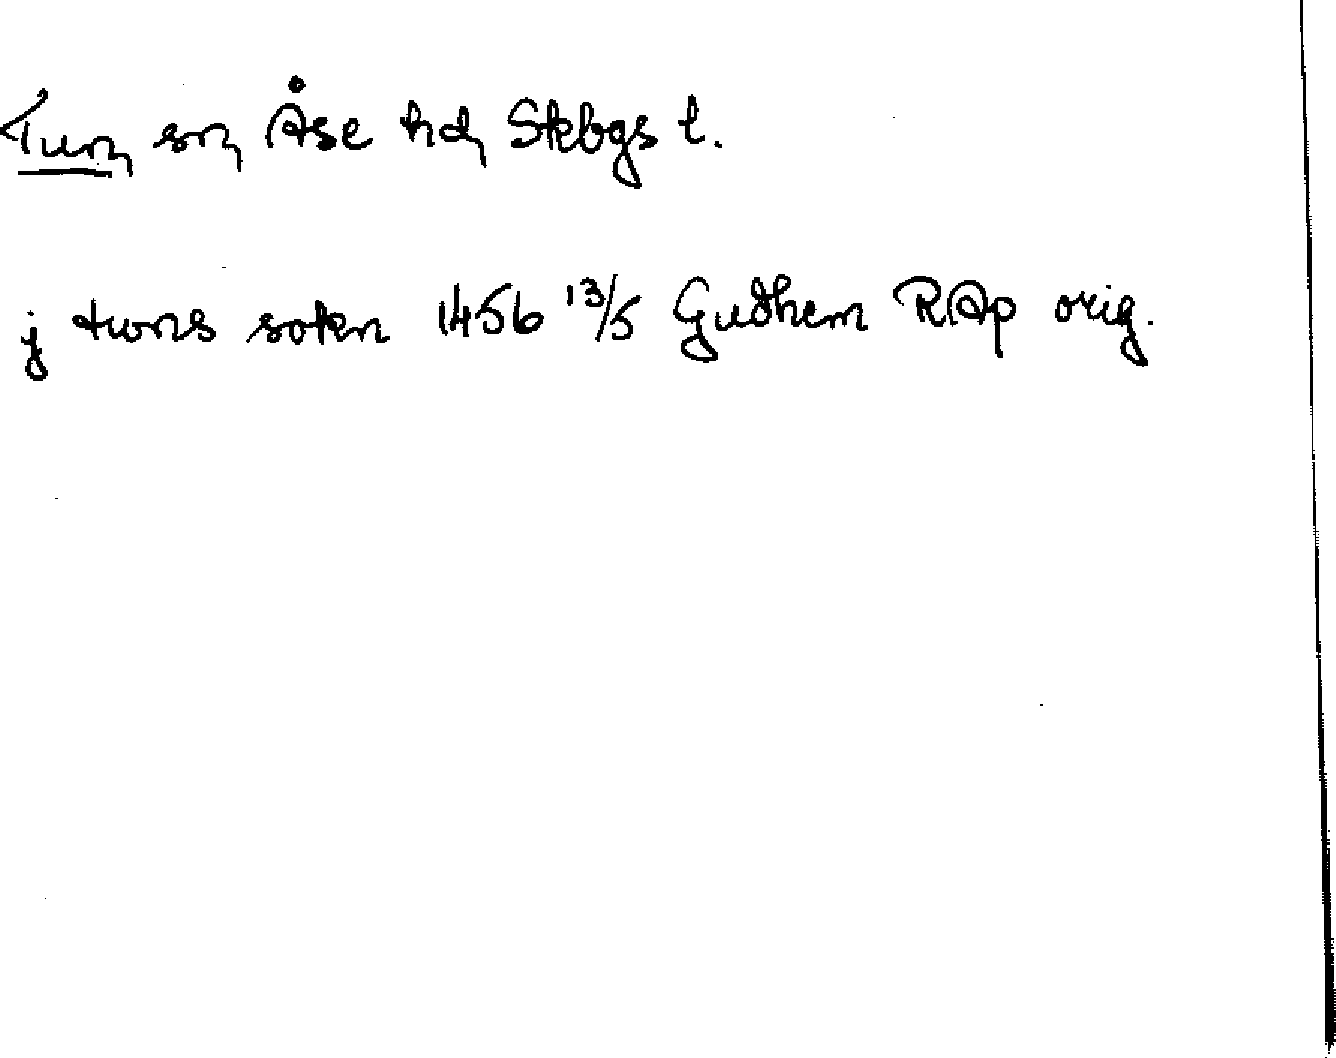 Tun sn Åse hd Skbgs l.
j twns sokn 1456 13/5 Gudhem RAp orig.